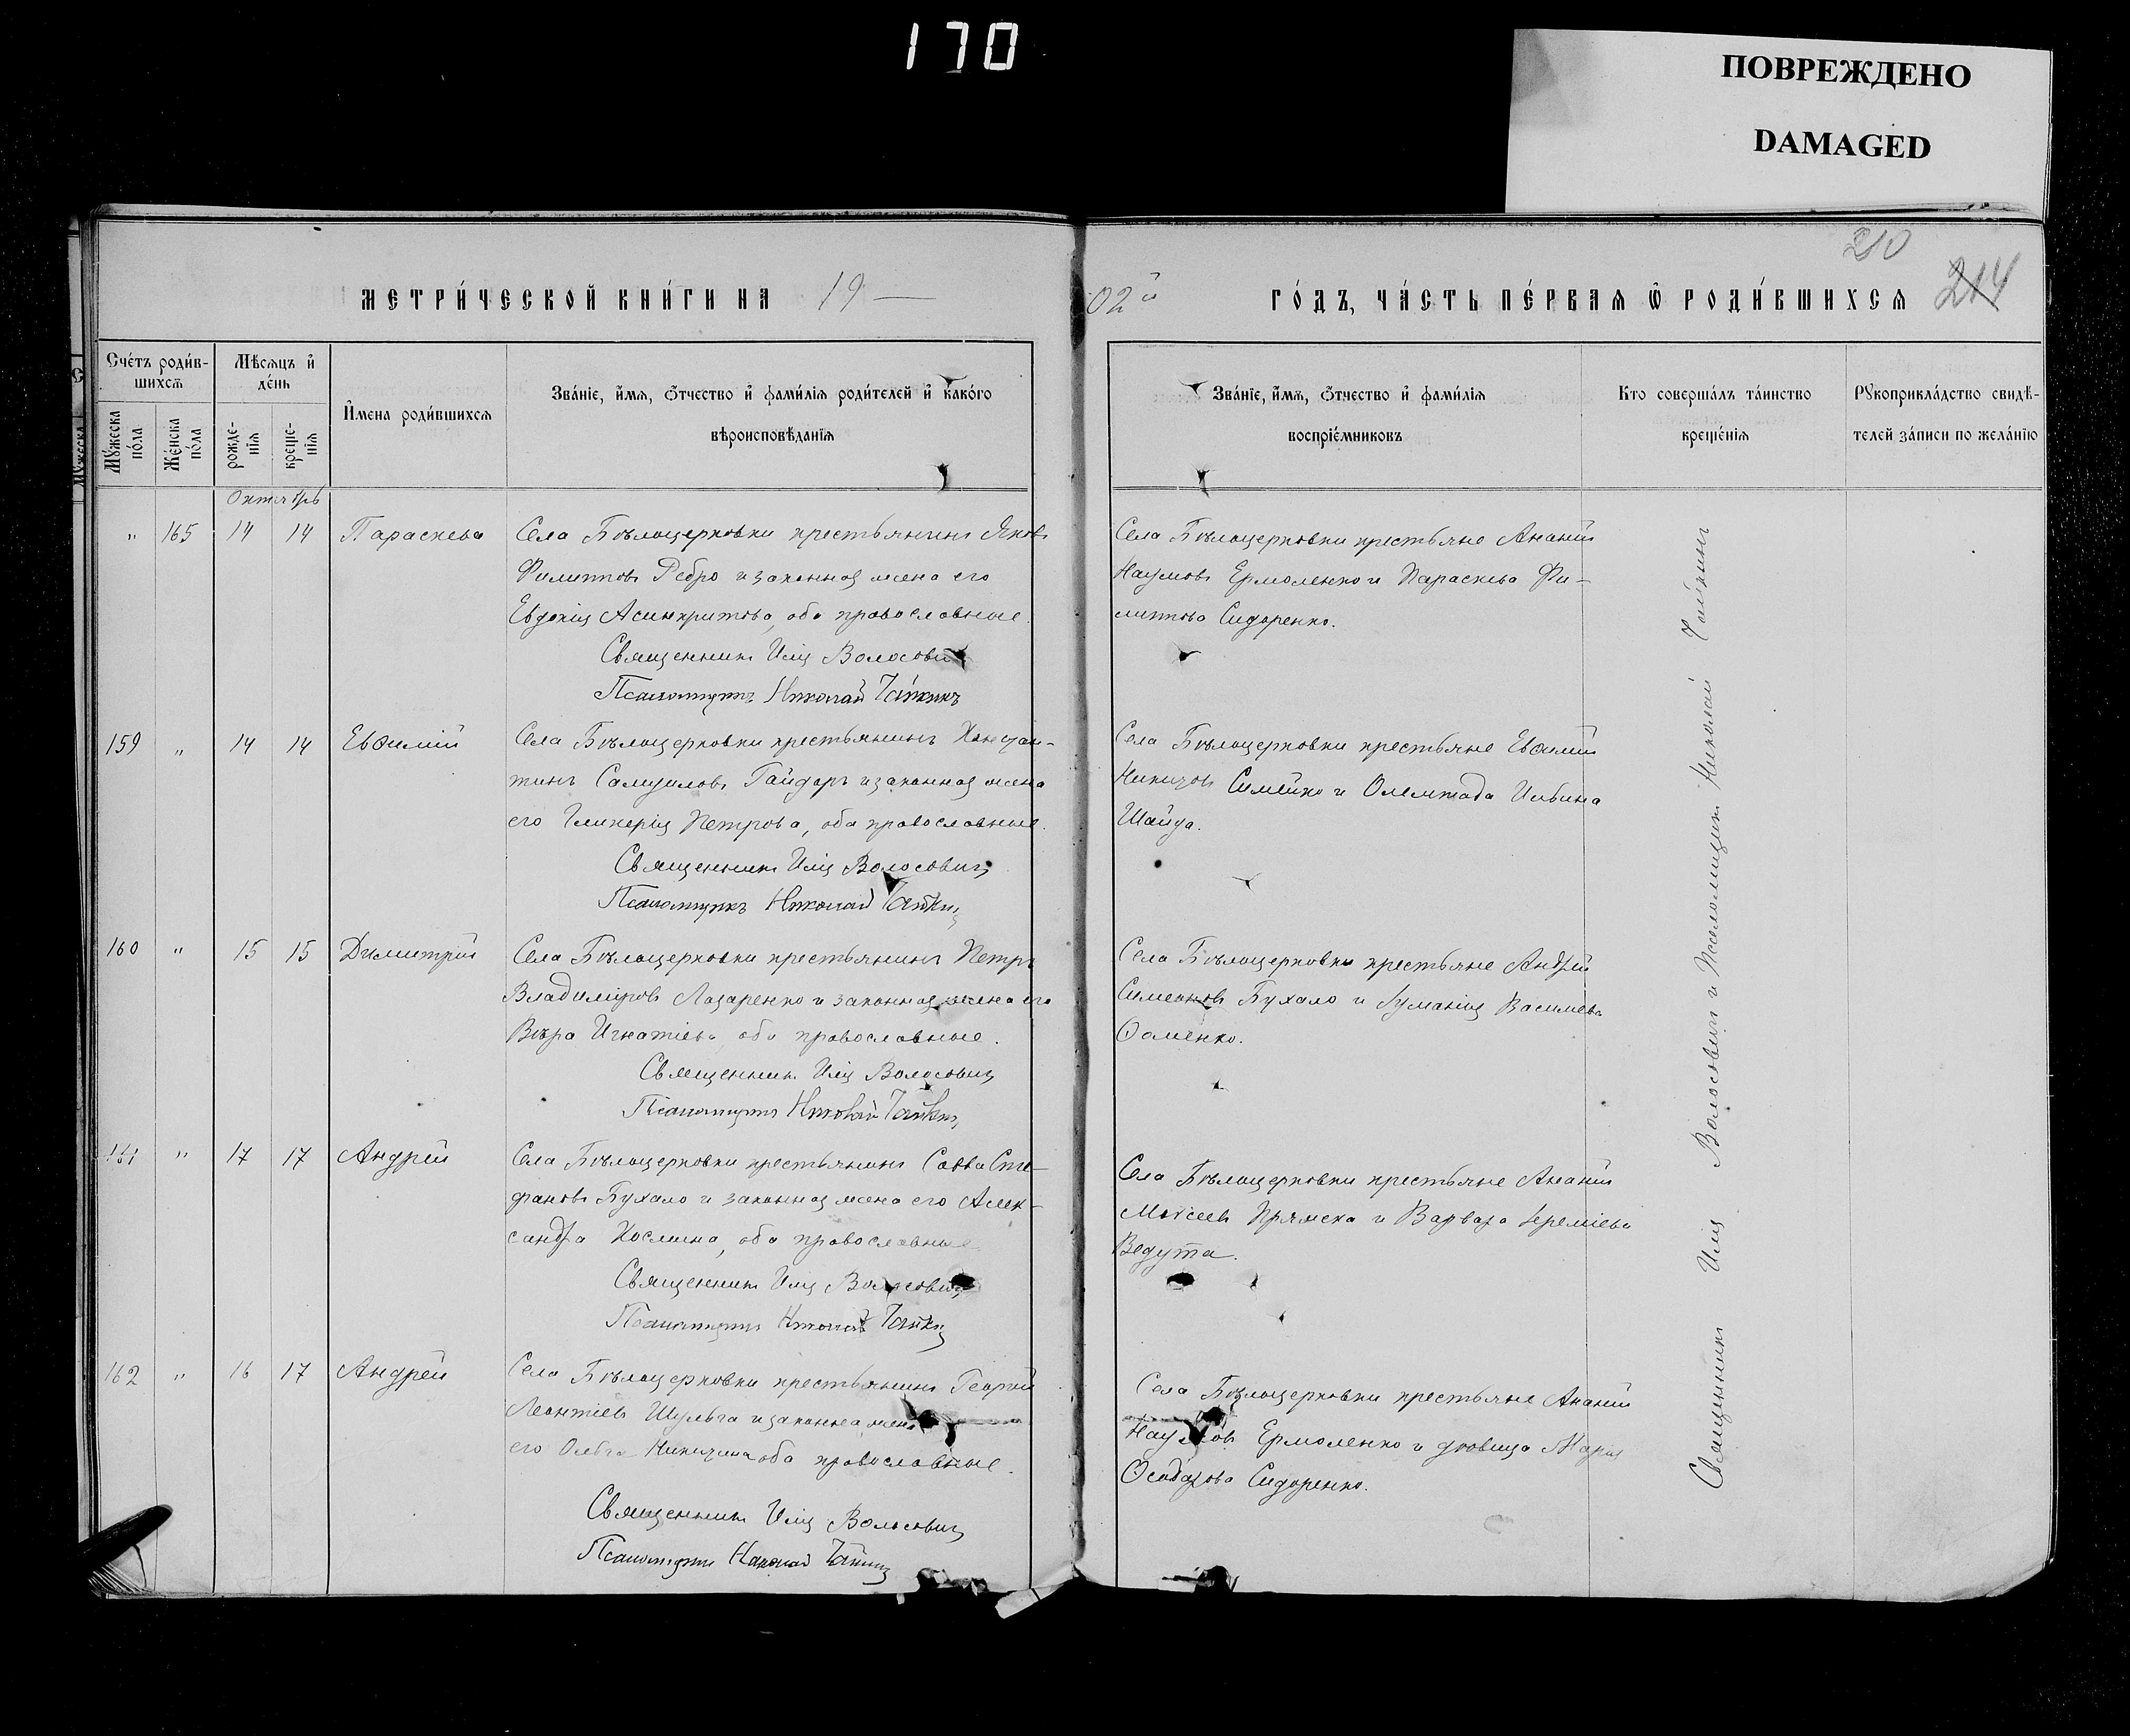 170
ПОВРЕЖДЕНО
DAMAGED
210
214
МЕТРИ́ЧЕСКОЙ КНИ́ГИ НА 19 — 02й ГО́ДЪ, ЧА́СТЬ ПЕ́РВАЯ Ѡ҆ РОДИ́ВШИХСЯ
Сче́тъ роди́в-
шихсѧ
Мѣ́сѧцъ и҆
де́нь
И҆мена роди́вшихсѧ
Зва́нїе, и҆́мѧ, ѻ҆́тчество и҆ фамилїѧ роди́телей и҆ како́гѡ
вѣроисповѣ́данїѧ
Зва́нїе, и҆́мѧ, ѻ҆́тчество и҆ фами́лїѧ
воспрїе́мниковъ
Кто соверша́лъ та́инство
креще́нїѧ
Рꙋкоприкла́дство свидѣ́-
телей за́писи по жела́нїю
Мꙋ́жеска
по́ла
Же́нска
по́ла
рожде́-
нїѧ
креще́-
нїѧ
Октябрь
" 165 14 14 Параскева
Села Бѣлоцерковки крестьянинъ Яковъ
Филипповъ Ребро и законная жена его
Евдокія Асинкритова, оба православные.
Священникъ Илія Волосовичъ
Псаломщикъ Николай Чайкинъ
Села Бѣлоцерковки крестьяне Ананій
Наумовъ Ермоленко и Параскева Фи-
липпова Сидоренко.
159 " 14 14 Евѳимій
Села Бѣлоцерковки крестьянинъ Констан-
тинъ Самуиловъ Гайдаръ и законная жена
его Гликерія Петрова, оба православные.
Священникъ Илія Волосовичъ
Псаломщикъ Николай Чайкинъ
Села Бѣлоцерковки крестьяне Евѳимій
Никитовъ Симейко и Олимпіада Ильина
Шайда.
160 " 15 15 Димитрій
Села Бѣлоцерковки крестьянинъ Петръ
Владиміровъ Лазаренко и законная жена его
Вѣра Игнатіева, оба православные.
Священникъ Илія Волосовичъ
Псаломщикъ Николай Чайкинъ
Села Бѣлоцерковки крестьяне Андрей
Симеоновъ Бухало и Іуліанія Васильева
Ѳоменко.
161 " 17 17 Андрей
Села Бѣлоцерковки крестьянинъ Савва Сте-
фановъ Бухало и законная жена его Алек-
сандра Космина, оба православные
Священникъ Илія Волосовичъ
Псаломщикъ Николай Чайкинъ
Села Бѣлоцерковки крестьяне Ананій
Моѵсеевъ Прямска и Варвара Іереміева
Ведута.
162 " 16 17 Андрей
Села Бѣлоцерковки крестьянинъ Георгій
Леонтіевъ Шульга и законная жена
его Ольга Никитина оба православные.
Священникъ Илія Волосовичъ
Псаломщикъ Николай Чайкинъ
Села Бѣлоцерковки крестьяне Ананій
Наумовъ Ермоленко и дѣвица Марія
Ѳеодорова Сидоренко.
Священникъ Илія Волосовичъ и Псаломщикъ Николай Чайкинъ